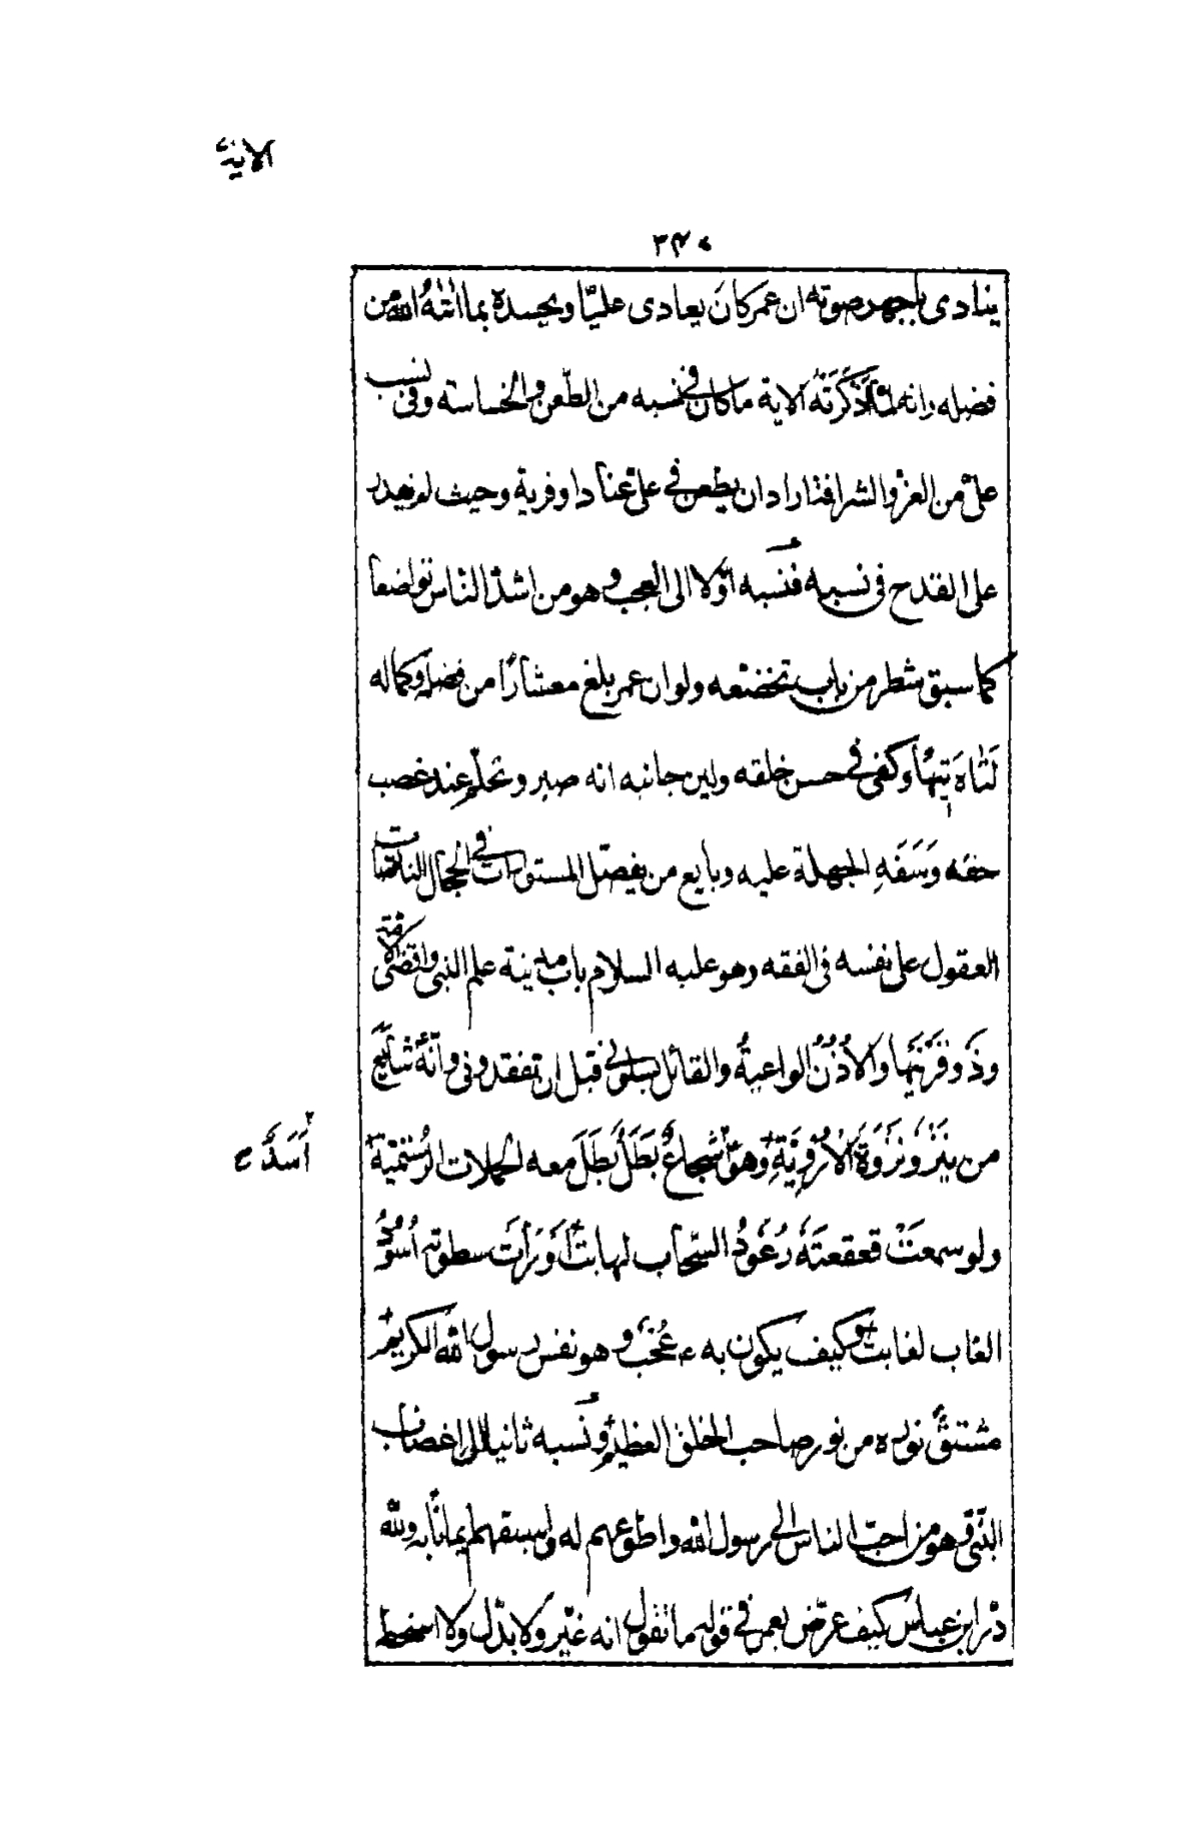 الاية
٣٤٠
ينادى باجهر صوته ان عمر كان يعادى عليّا ويحسده بما اتٰهُ الله من
فضله وانه لمّا اَذْكَرَتْهُ الاية ما كان فى نسبه من الطّعن والخساسة وفى نسب
علىّ من العزّ والشرافة اراد ان يطعن فى علىّ عنادا وفرية وحيث لم يقدر
على القدح فى نسبه فنسبه اوّلا الى العجب وهو من اشدّ الناس تواضعا
كما سبق شطر من باب تخضّعه ولو ان عمر بلغ معشارًا من فضله وكماله
لَتَاهَ تِيْهًا وكفى فى حسن خلقه ولين جانبه انه صبر وتحلّم عند غصب
حقه وَسَفَهِ الجهلة عليه وبايع من يفضّل المستورات فى الحجال الناقصات
العقول على نفسه فى الفقه وهو عليه السلام باب مدينة علم النبى واقضى الامّة
وذو قَرْنَيْهَا والاُذُنُ الواعيةُ والقائل سلونى قبل ان تفقدونى وانّه
من يَنْزُو نَزْوَةَ الاُرْوِيَّةِ وهو شُجاعٌ بَطَلٌ بَطَلَ معه الحملات الرُّسْتَمِيّة
أسَدٌ ح
ولو سمعَتْ قعقعتَهُ رُعُودُ السّحاب لهابتْ اَوْ رَأَتْ سطوته اُسُوْدُ
الغاب لغابت وكيف يكون به عُجْبٌ وهو نفس رسول الله الكريم
مشتقّ نوره من نور صاحب الخلق العظيم ونسبه ثانيا الى اغضاب
النّبى وهو من احبّ الناس الى رسول الله واطوعهم له واسبقهم ايمانًا به ولله
درّ ابن عباس كيف عرّض بعمر فى قوله ما نقول انه غيّر ولا بدّل ولا اسخط